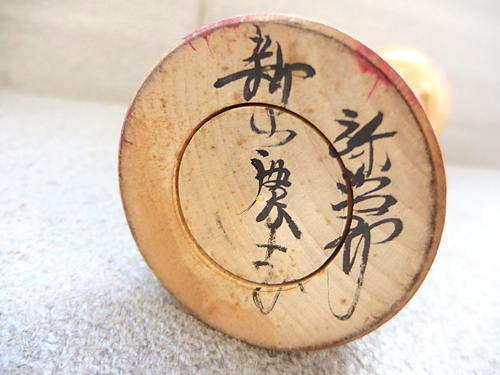 弥治郎
新山慶志